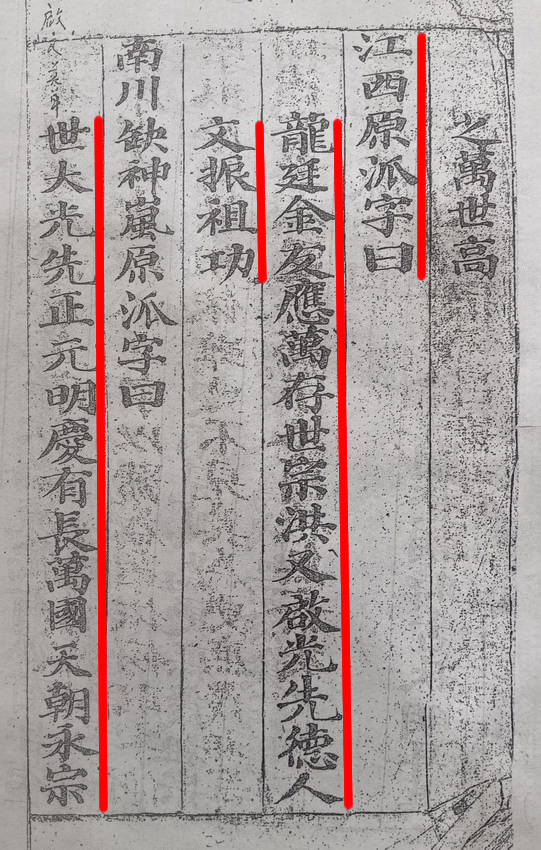 之萬世高
江西原派字曰
龍廷金友應萬存世宗洪又啟光先德人
文振祖功
南川缺神嵐原派字曰
世大光先正元明慶有長萬國天朝永宗